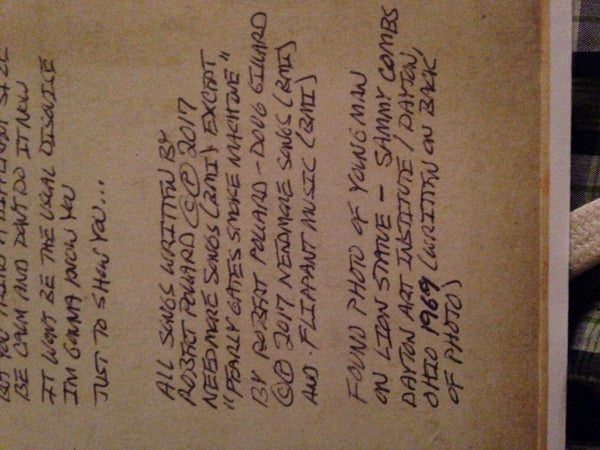 YOU A DIFFERENT SIZE
BE CALM AND DON'T DO IT NOW
IT WON'T BE THE USUAL DISGUISE
I'M GONNA KNOW YOU
JUST TO SHOW YOU...
ALL SONGS WRITTEN BY
ROBERT POLLARD ©℗ 2017
NEEDMORE SONGS (BMI) EXCEPT
"PEARLY GATES SMOKE MACHINE"
BY ROBERT POLLARD - DOUG GILLARD
©℗ 2017 NEEDMORE SONGS (BMI)
AND FLIPPANT MUSIC (BMI)
FOUND PHOTO OF YOUNG MAN
ON LION STATUE - SAMMY COMBS
DAYTON ART INSTITUTE / DAYTON,
OHIO 1969 (WRITTEN ON BACK
OF PHOTO)